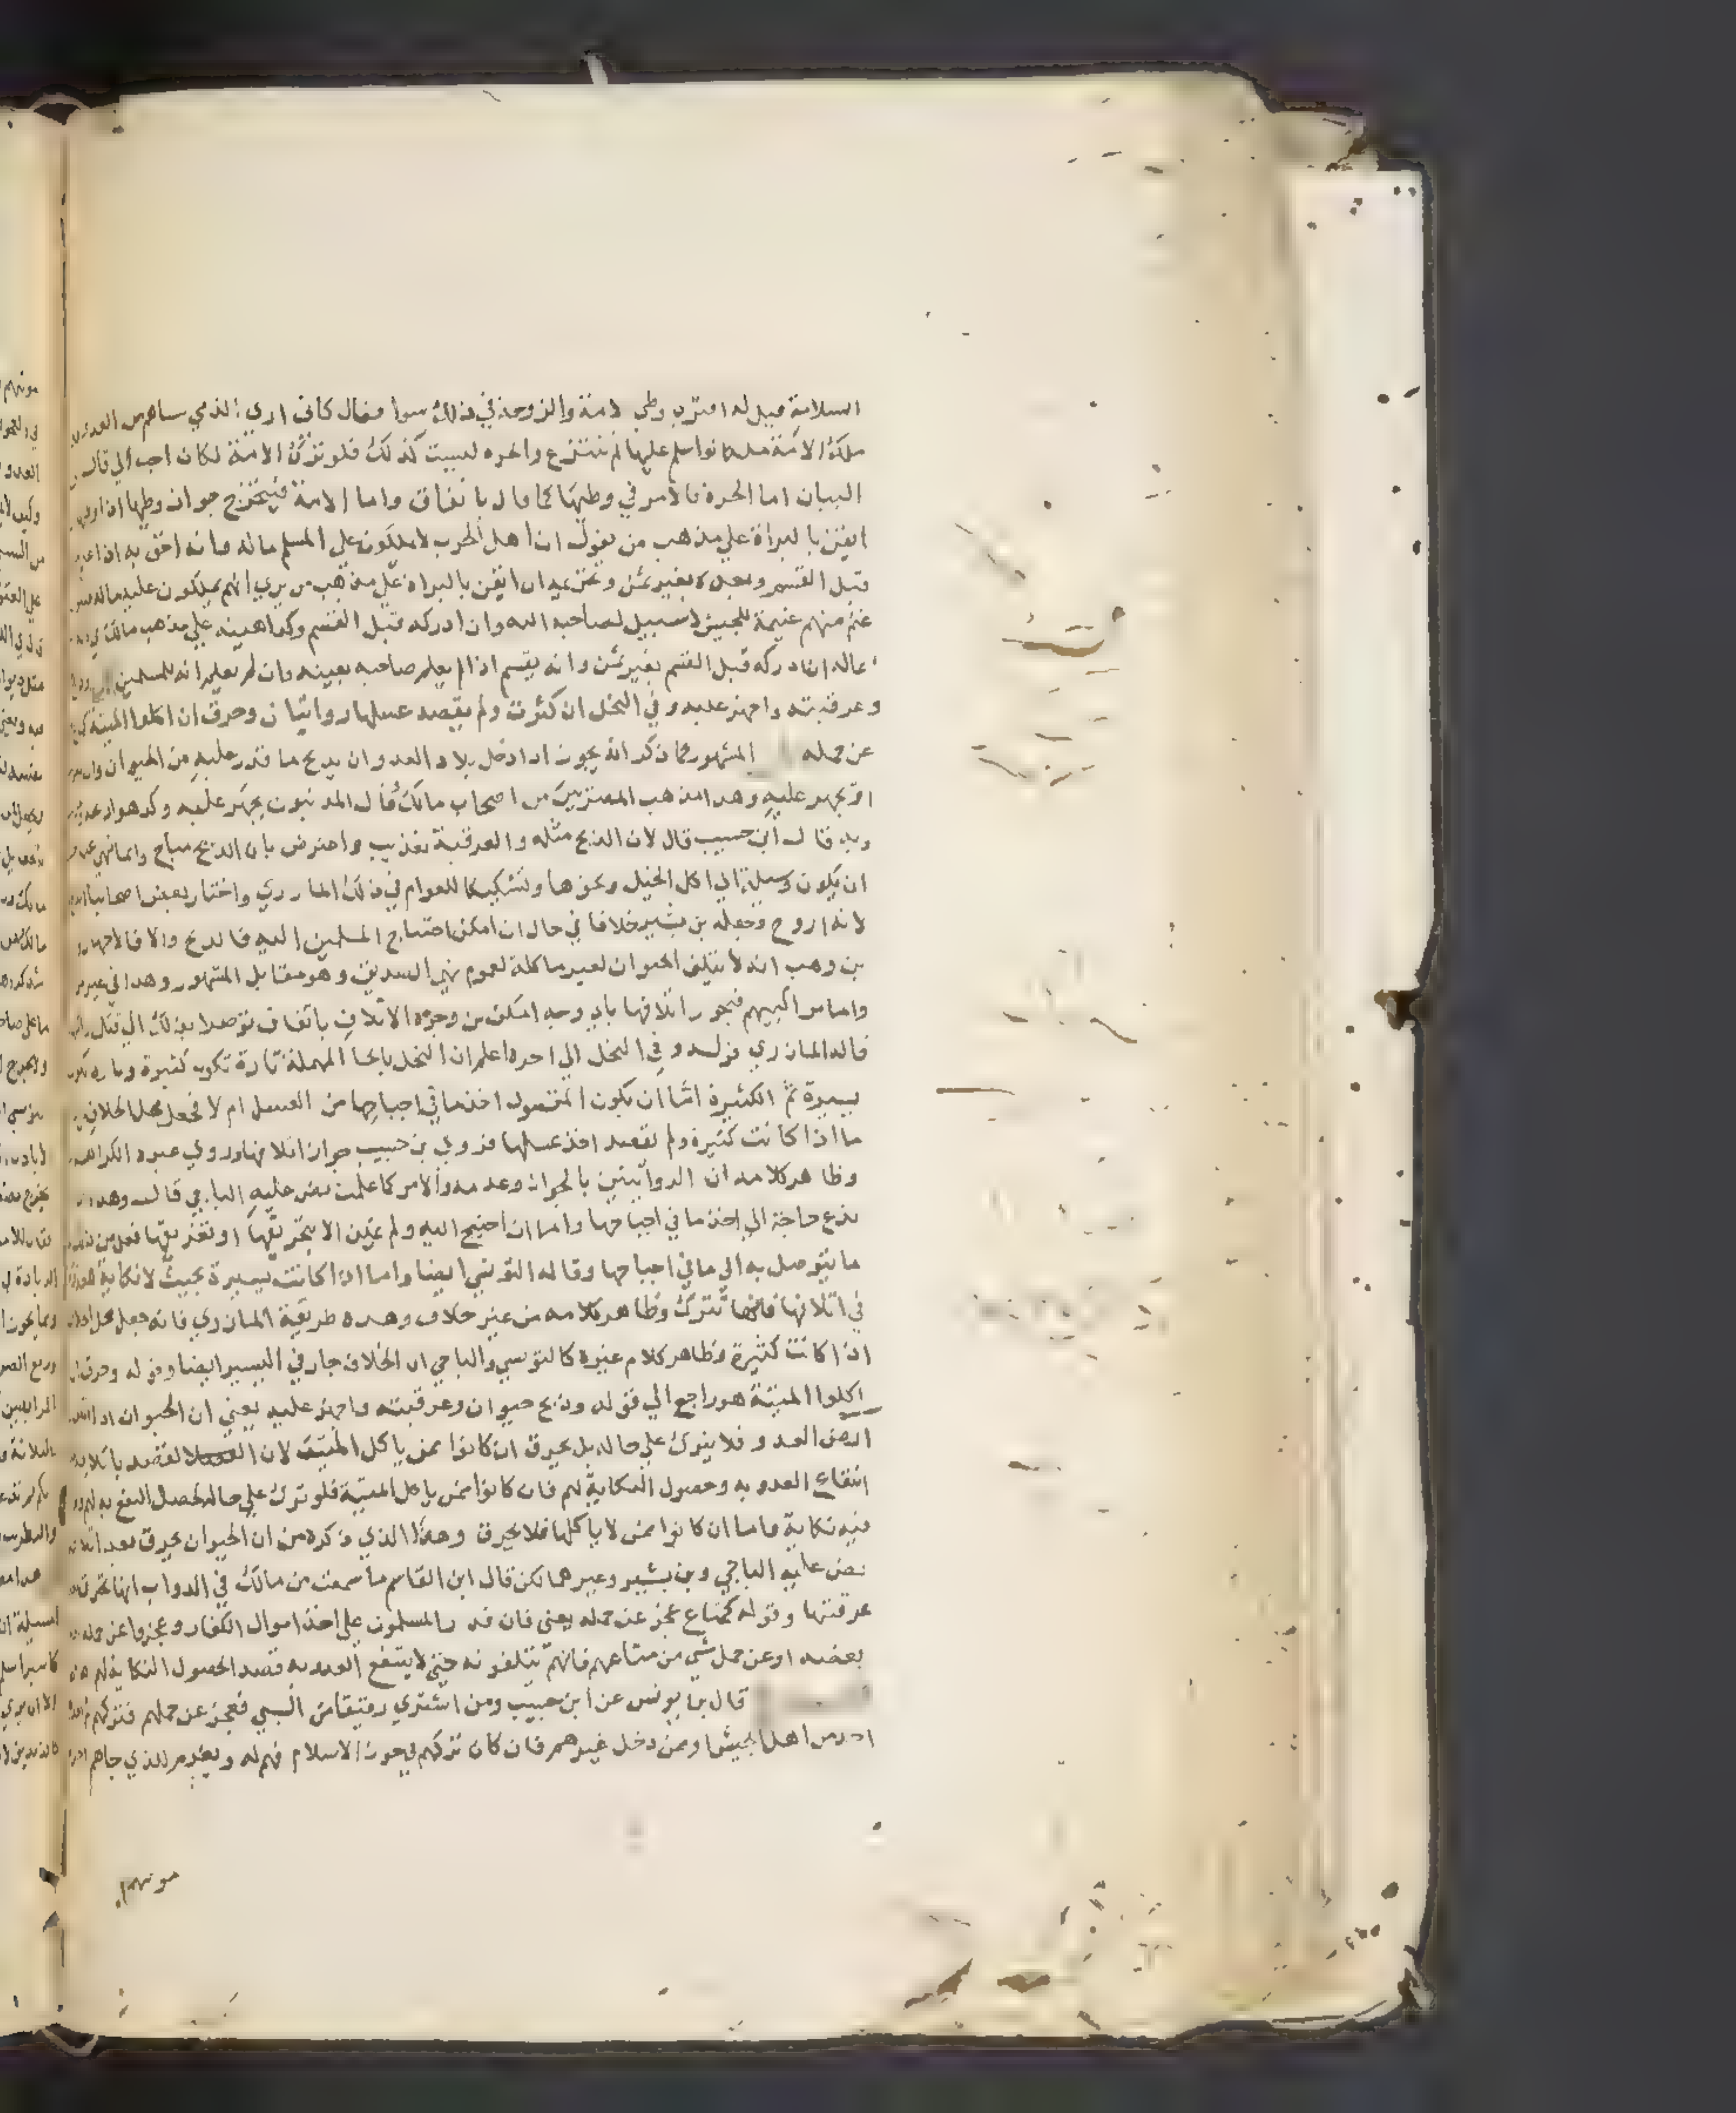 السلامة قيل له افترى وطي الامة والزوجة في ذلك سوا فقال كاني ارى الذي ساهم من العدو
ملك الامة ملكا لو اسلم عليها لم تنتزع والحرة ليست كذلك فلو ترك الامة لكان احب الي قال
البيان اما الحرة فالامر في وطيها كما قال باتفاق واما الامة فيتخرج جواز وطيها ان
ايقن بالبراة علي مذهب من يقول ان اهل الحرب لا يملكون علي المسلم ماله وانه احق به
قبل القسم وبعده بغير ثمن ويمتنع ان ايقن بالبراة علي مذهب من يري انهم يملكون عليه ماله
غنم منهم غنيمة للجيش لا سبيل لصاحبه اليه وان ادركه قبل القسم وكراهيته علي مذهب مالك
ماله ان ادركه قبل القسم بغير ثمن وانه يقسم اذا لم يعلم صاحبه بعينه وان لم يعلم انه للمسلمين
وعرقبته واجهز عليه وفي النحل ان كثرت ولم يقصد عسلها روايتان وحرق ان اكلوا الميتة
عن حمله المشهور كما ذكر انه يجوز اذا دخل بلاد العدو ان يذبح ما قدر عليه من الحيوان وان
او يجهز عليه وهذا مذهب المصريين من اصحاب مالك قال المدنيون يجهز عليه وكرهوا
وبه قال ابن حبيب قال لان الذبح مثله والعرقبة تعذيب واعترض بان الذبح مباح وانما نهي عنه
ان يكون وسيلة الي اكل الخيل ونحوها وتشكيكا للعوام في ذلك المازري واختار بعض اصحابنا
لانه اروح وجعله بن بشير خلافا في حال ان امكن احتياج المسلمين اليه فالذبح والا فالاجهاز
بن وهب انه لا يتلف الحيوان لغير ماكلة لعموم نهي الصديق وهو مقابل المشهور وهذا في غير
واما مراكبهم فيجوز اتلافها باي وجه امكن من وجوه الاتلاف باتفاق توصلا بذلك الي قتل
قاله المازري قوله وفي النحل الي اخره اعلم ان النحل بالحا المهملة تارة تكون كثيرة وتارة تكون
يسيرة ثم الكثيرة اما ان يكون المقصود اخذ ما في اجباحها من العسل ام لا فجعل محل الخلاف
ما اذا كانت كثيرة ولم يقصد اخذ عسلها فروي بن حبيب جواز اتلافها وروي غيره الكراهة
وظاهر كلامه ان الروايتين بالجواز وعدمه والامر كما علمت نص عليه الباجي قال وهذا
تدع حاجة الي اخذ ما في اجباحها واما ان احتيج اليه ولم يمكن الا بتحريقها او تغريقها فعل من
ما يتوصل به الي ما في اجباحها وقاله التونسي ايضا واما اذا كانت يسيرة بحيث لا نكاية
في اتلافها فانها تترك وظاهر كلامه من غير خلاف وهذه طريقة المازري فانه جعل محل
اذا كانت كثيرة وظاهر كلام غيره كالتونسي والباجي ان الخلاف جار في اليسير ايضا وقوله وحرق ان
اكلوا الميتة هو راجع الي قوله وذبح حيوان وعرقبته واجهز عليه يعني ان الحيوان اذا
ارض العدو فلا يترك علي حاله بل يحرق ان كانوا ممن ياكل الميتة لان القصد باتلافه
انتفاع العدو به وحصول النكاية لهم فان كانوا ممن ياكل الميتة فلو ترك علي حاله لحصل النفع به لهم
فيه نكاية واما ان كانوا ممن لا ياكلها فلا يحرق وهذا الذي ذكره من ان الحيوان يحرق بعد اتلافه
نص عليه الباجي وبن بشير وغيرهما لكن قال ابن القاسم ما سمعت من مالك في الدواب انها تحرق
عرقبتها وقوله كمتاع عجز عن حمله يعني فان قدر المسلمون علي اخذ اموال الكفار وعجزوا عن حمله
بعضه او عن حمل شي من متاعهم فانهم يتلفونه حتي لا ينتفع العدو به قصدا لحصول النكاية لهم
قال بن يونس عن ابن حبيب ومن اشتري رقيقا من السبي فعجز عن حملهم فتركهم
احد من اهل الجيش او ممن دخل غيرهم فان كان تركهم في حوز الاسلام فهم له ويغرم للذي جاهم
مونتهم